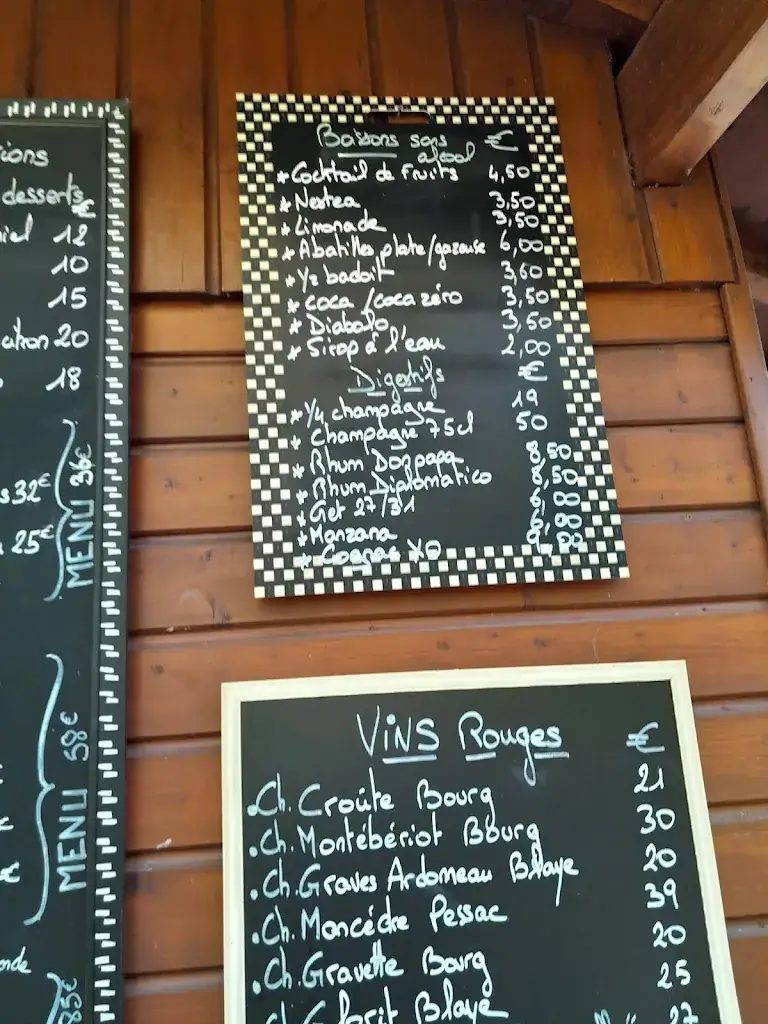 desserts
€
12
10
15
20
18
32€
25€
MENU 36€
MENU 58€
85€
Boissons sans alcool €
* Cocktail de Fruits 4,50
* Nestea 3,50
* Limonade 3,50
* Abatilles plate/gazeuse 6,00
* 1/2 badoit 3,60
* coca /coca zéro 3,50
* Diabolo 3,50
* Sirop à l'eau 2,00
Digestifs €
* 1/4 champagne 19
* Champagne 75cl 50
* Rhum Don papa 8,50
* Rhum Diplomatico 8,50
* Get 27/31 6,00
* Manzana 6,00
* Cognac XO 9,00
Vins Rouges €
.Ch. Croûte Bourg 21
.Ch. Montébériot Bourg 30
.Ch. Graves Ardoneau Blaye 20
.Ch. Moncèdre Pessac 39
.Ch. Gravette Bourg 20
Blaye 25
27